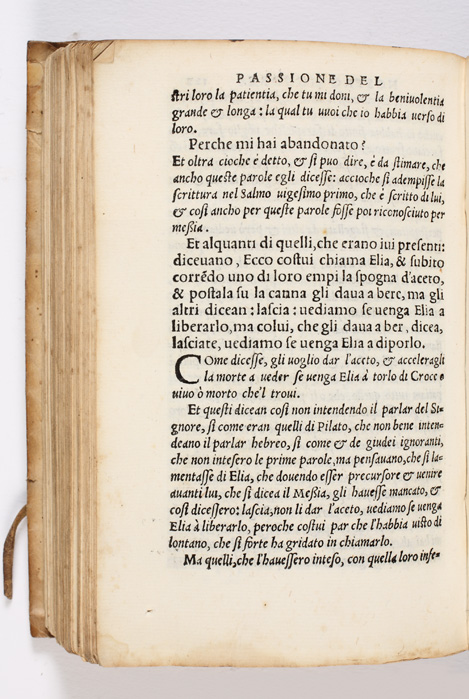 PASSIONE DEL
stri loro la patientia, che tu mi doni, & la beniuolentia
grande & longa: la qual tu vuoi che io habbia uerso di
loro.
Perche mi hai abandonato?
Et oltra cioche è detto, & si puo dire, è da stimare, che
ancho queste parole egli dicesse: accioche si adempisse la
scrittura nel Salmo uigesimo primo, che è scritto di lui,
& cosi ancho per queste parole fosse poi riconosciuto per
meßia.
Et alquanti di quelli, che erano iui presenti:
diceuano, Ecco costui chiama Elia, & subito
corrēdo uno di loro empi la spogna d'aceto,
& postala su la canna gli daua a bere, ma gli
altri dicean: lascia: uediamo se uenga Elia a
liberarlo, ma colui, che gli daua a ber, dicea,
lasciate, uediamo se uenga Elia a diporlo.
COme dicesse, gli uoglio dar l'aceto, & acceleragli
la morte a ueder se uenga Elia à torlo di Croce o
uiuo ò morto che'l troui.
Et questi dicean cosi non intendendo il parlar del Si-
gnore, si come eran quelli di Pilato, che non bene inten-
deano il parlar hebreo, si come & de giudei ignoranti,
che non intesero le prime parole, ma pensauano, che si la-
mentasse di Elia, che douendo esser precursore & uenire
auanti lui, che si dicea il Meßia, gli hauesse mancato, &
cosi dicessero: lascia, non li dar l'aceto, uediamo se uenga
Elia à liberarlo, peroche costui par che l'habbia uisto di
lontano, che si forte ha gridato in chiamarlo.
Ma quelli, che l'hauessero inteso, con quella loro infe-